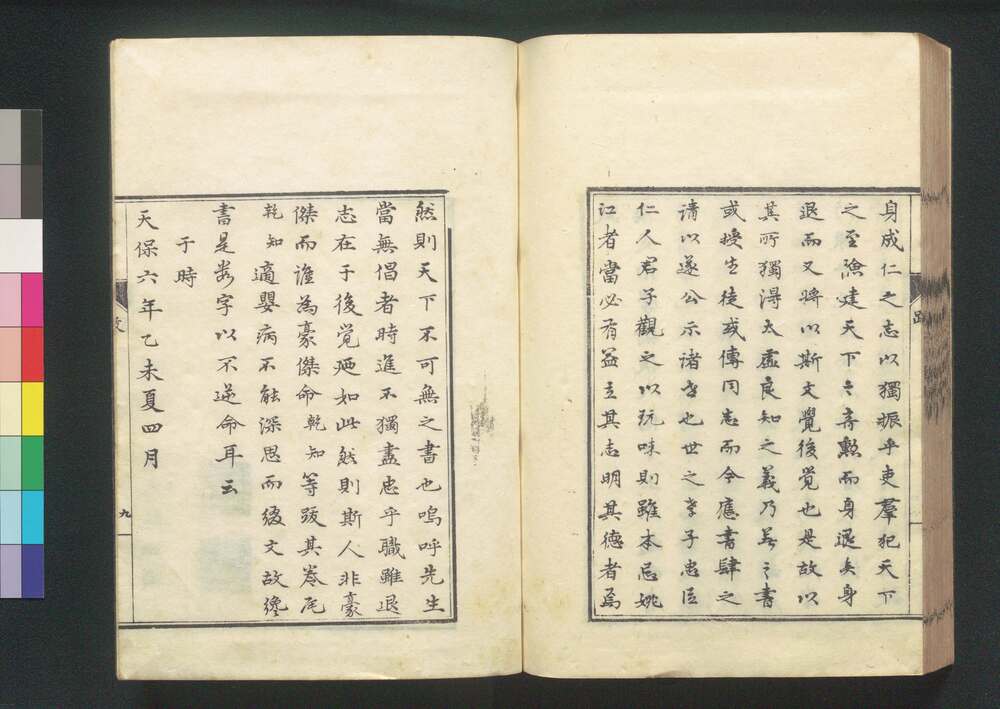 身成仁之志以獨振乎吏羣犯天下
之至險建天下之奇勲而身退矣身
退而又將以斯文覺後覚也是故以
其所獨得太虚良知之義乃著之書
或授生徒或傳同志而今應書肆之
請以遂公示諸世也世之孝子忠臣
仁人君子觀之以玩味則雖本忌姚
江者當必有益立其志明其德者焉
跋
然則天下不可無之書也嗚呼先生
當無倡者時進不獨盡忠乎職雖退
志在于後覚也如此然則斯人非豪
傑而誰為豪傑命乾知等跋其卷尾
乾知適嬰病不能深思而綴文故纔
書是数字以不逆命耳云
于時
天保六年乙未夏四月
九